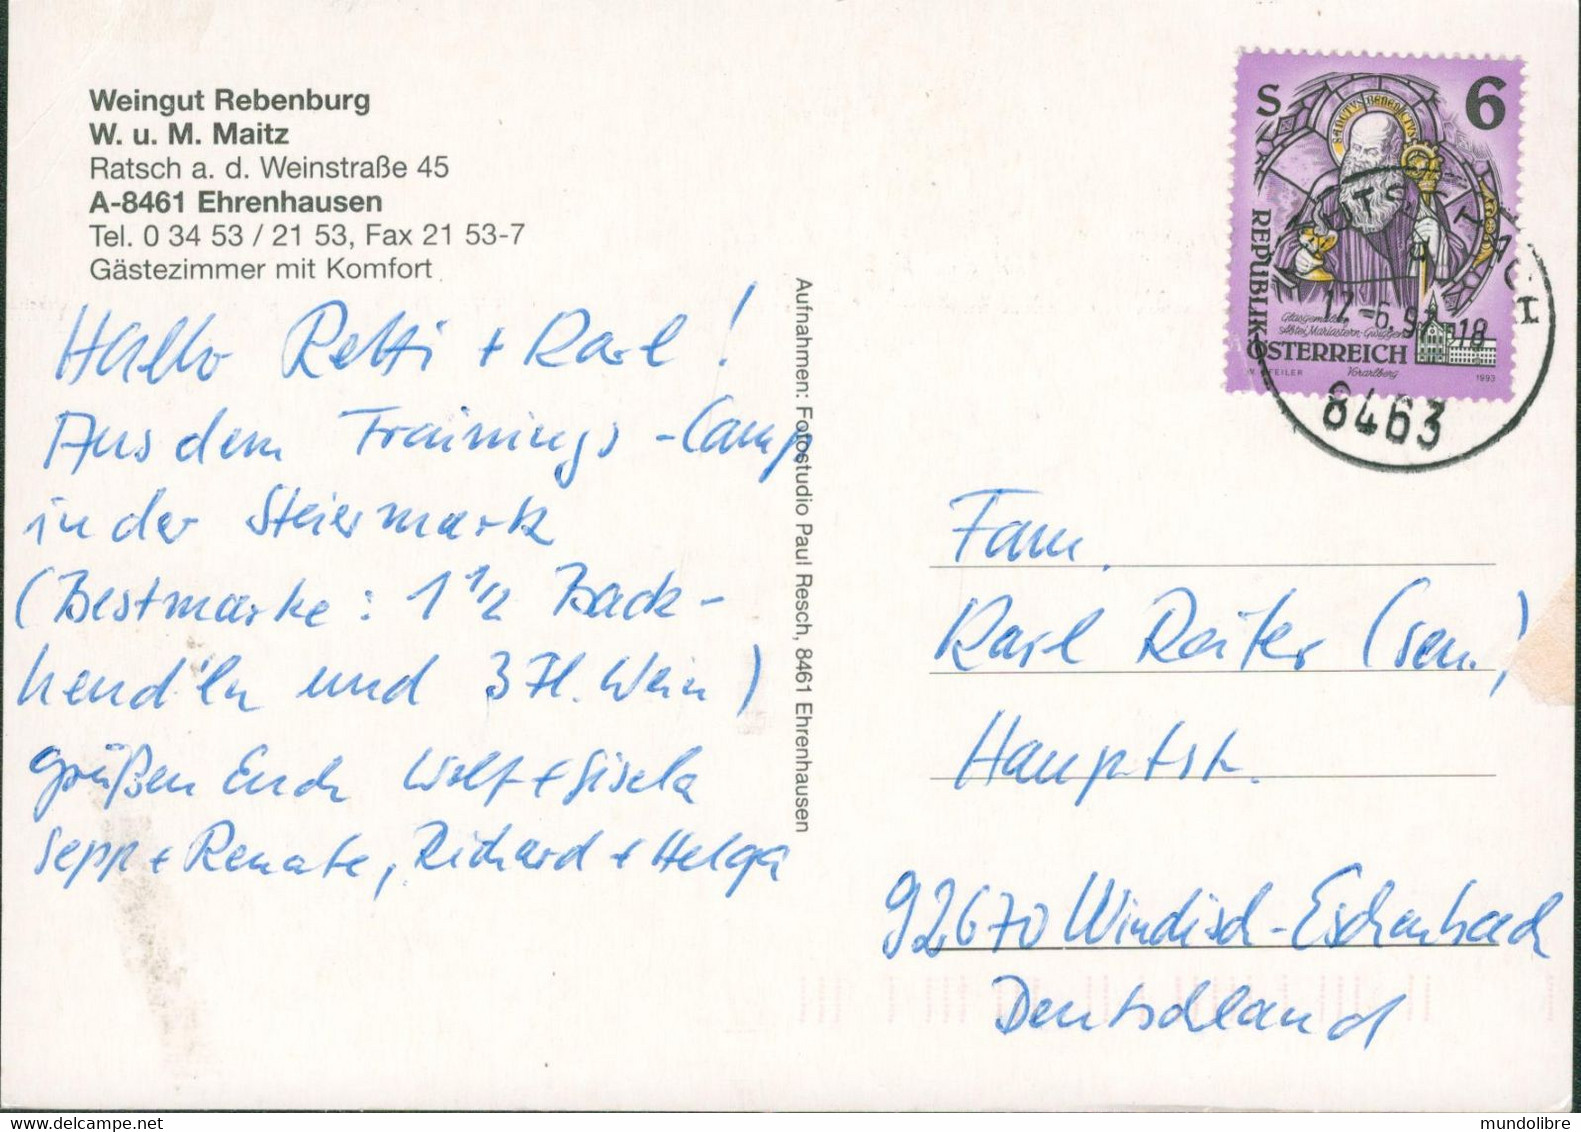 Weingut Rebenburg
W. u. M. Maitz
Ratsch a. d. Weinstraße 45
A-8461 Ehrenhausen
Tel. 0 34 53 / 21 53, Fax 21 53-7
Gästezimmer mit Komfort
Hallo Retti + Karl!
Aus dem Trainings-Camp
in der Steiermark
(Bestmarke: 1 1/2 Back-
hend'ln und 3 Fl. Wein)
grüßen Euch Wolf + Gisela
Sepp + Renate, Richard + Helga
Aufnahmen: Fotostudio Paul Resch, 8461 Ehrenhausen
S 6
SANCTVS BENEDICTVS
REPUBLIK
ÖSTERREICH
Glasgemälde
Abtei Mariastern-Gwiggen
Vorarlberg
1993
8463
Fam.
Karl Reiter (sen.)
Hauptstr.
92670 Windisch-Eschenbach
Deutschland
mundolibre